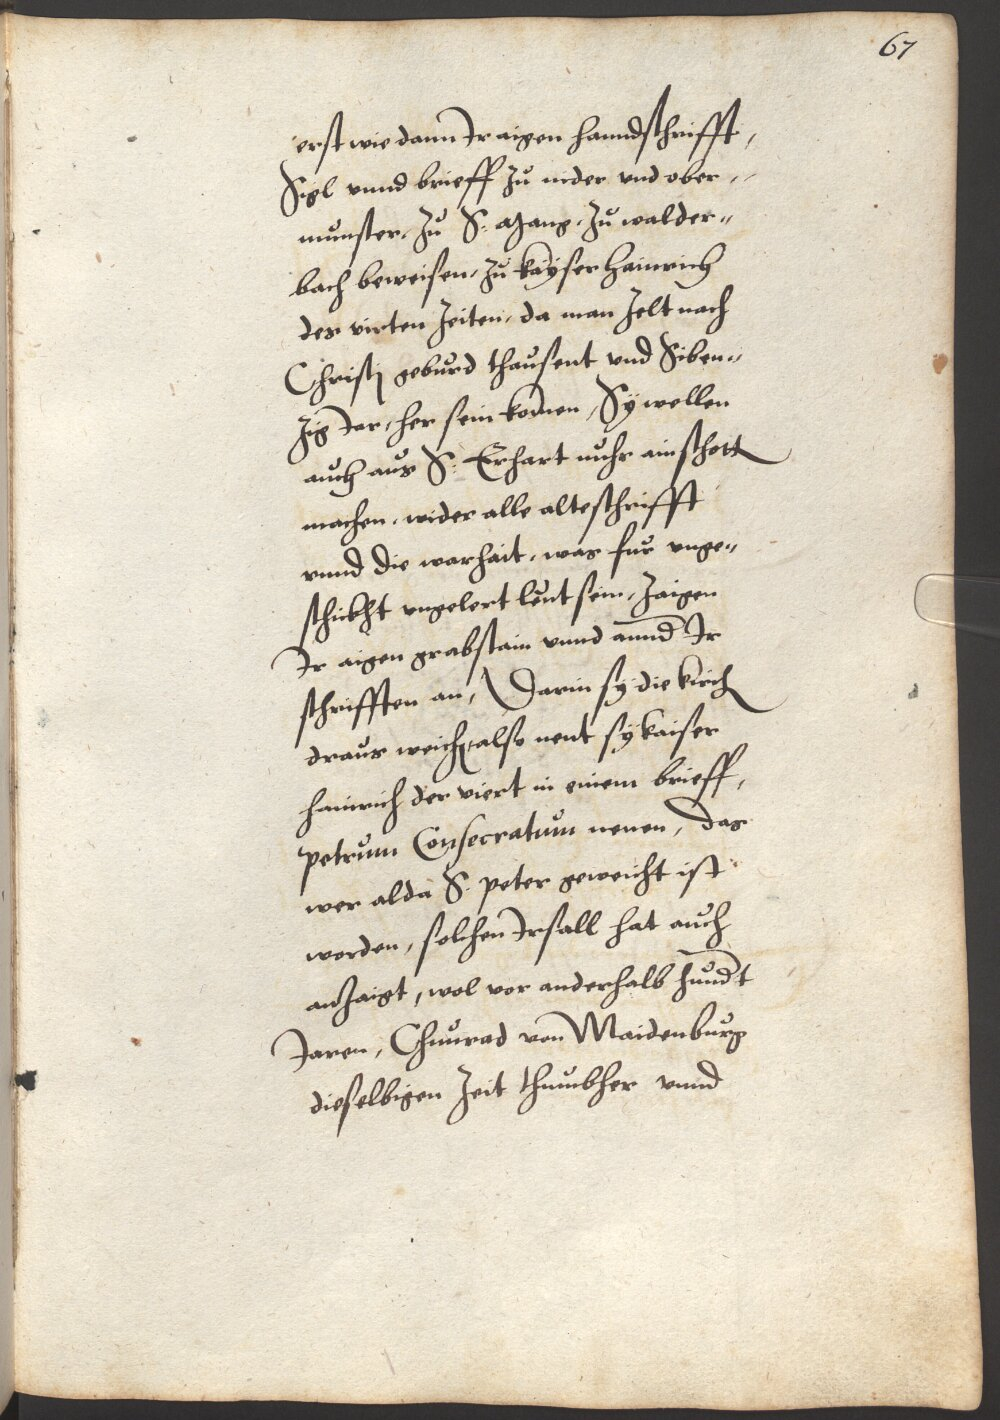 67
erst wie dann Ir aigen hanndschrifft,
Sigl vnnd brieff zů nider vnd ober⸗
munster, zů S: Mang, zů walder⸗
bach beweisen, zů kayser Hainrich
des virten zeiten, da man zelt nach
Christj geburd thausent vnd Siben⸗
zig Jar, her sein komen, Sy wellen
auch aus S: Erhart nuhr ain schott
machen, wider alle alte schrifft
vnnd die warhait, was fur vnge⸗
schickht vngelert leut sein, zaigen
Ir aigen grabstain vnnd annd Ir
schrifften an, Darin sy die kirch
draus weich, also nent sy kaiser
hainrich der viert in einem brieff,
petrum Consecratum nenen, das
wer alda S: peter geweicht ist
worden, solchen Irsall hat auch
anzaigt, wol vor anderhalb hundt
Jaren, Chunrad von Maidenburg
dieselbigen Zeit thumbher vnnd